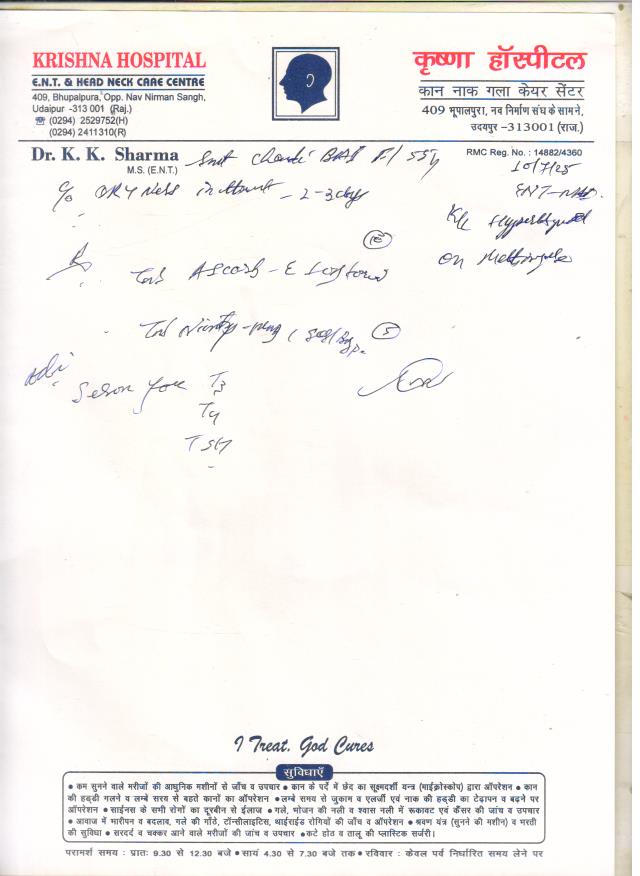 KRISHNA HOSPITAL
E.N.T. & HEAD NECK CARE CENTRE
409, Bhupalpura, Opp. Nav Nirman Sangh,
Udaipur -313 001 (Raj.)
☎ (0294) 2529752(H)
(0294) 2411310(R)
कृष्णा हॉस्पीटल
कान नाक गला केयर सेंटर
409 भूपालपुरा, नव निर्माण संघ के सामने,
उदयपुर –313001 (राज.)
Dr. K. K. Sharma
M.S. (E.N.T.)
RMC Reg. No. : 14882/4360
Smt F/ 55y
10/7/25
C/o DRYNess in 2-3 days
ENT
K/c
on
Tab
Tab
T3
T4
TSH
I Treat. God Cures
सुविधाएँ
● कम सुनने वाले मरीजों की आधुनिक मशीनों से जाँच व उपचार ● कान के पर्दे में छेद का सूक्ष्मदर्शी यन्त्र (माईक्रोस्कोप) द्वारा ऑपरेशन ● कान
की हड्डी गलने व लम्बे समय से बहते कानों का ऑपरेशन ● लम्बे समय से जुकाम व एलर्जी एवं नाक की हड्डी का टेढ़ापन व बढ़ने पर
ऑपरेशन ● साईनस के सभी रोगों का दूरबीन से ईलाज ● गले, भोजन की नली व श्वास नली में रूकावट एवं कैंसर की जांच व उपचार
● आवाज में भारीपन व बदलाव, गले की गाँठे, टॉन्सीलाइटिस, थाईराईड रोगियों की जाँच व ऑपरेशन ● श्रवण यंत्र (सुनने की मशीन) व भरती
की सुविधा ● सरदर्द व चक्कर आने वाले मरीजों की जांच व उपचार ● कटे होठ व तालू की प्लास्टिक सर्जरी।
परामर्श समय : प्रातः 9.30 से 12.30 बजे ● सायं 4.30 से 7.30 बजे तक ● रविवार : केवल पूर्व निर्धारित समय लेने पर